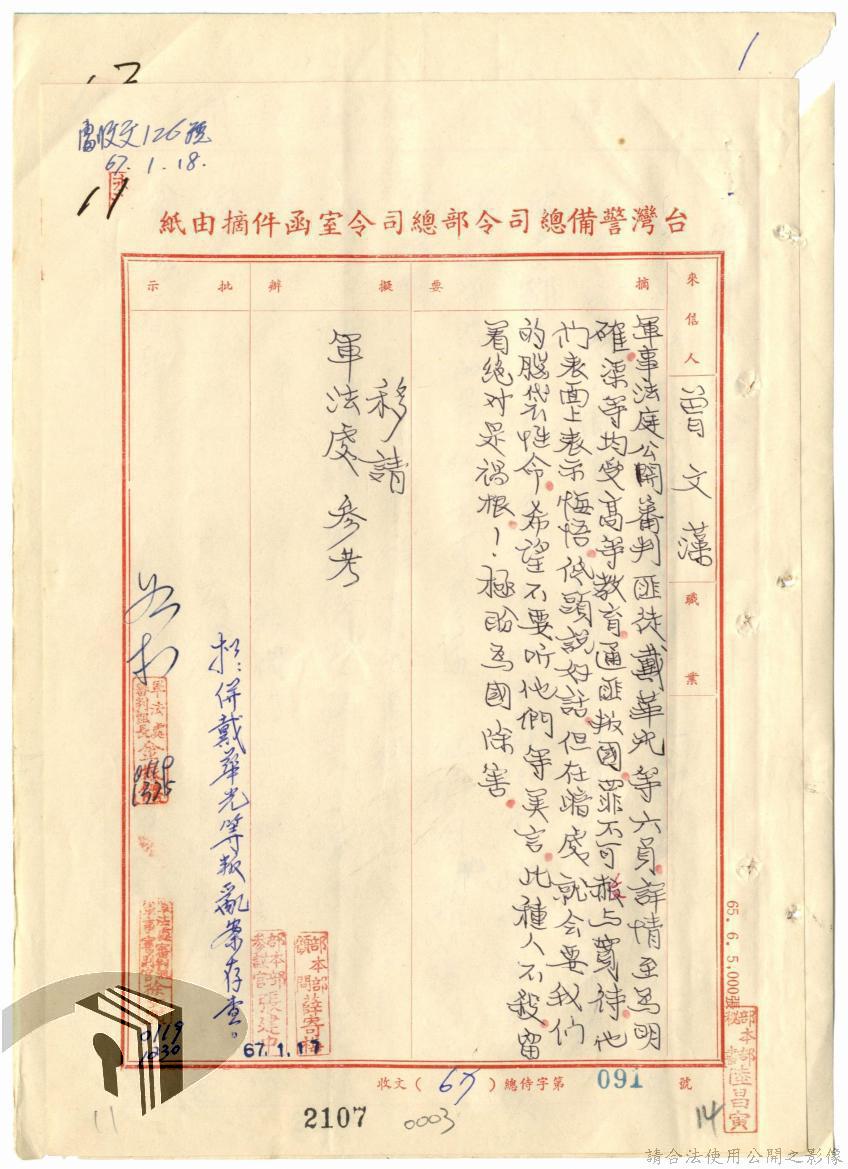 1
收文126號
67.1.18.
台灣警備總司令部總司令室函件摘由紙
來信人
曾文藻
職業
摘要
軍事法庭公開審判匪徒戴華光等六員詳情至為明
確渠等均受高等教育通匪叛國罪不可赦与寬待他
們表面上表示悔悟低頭說好話但在暗處就会要我们
的腦袋性命希望不要听他們等美言此種人不殺留
着絕对是禍根!極盼為國除害
擬辦
移請
軍法處參考
部本部顧問薛寄梅
部本部參議官張建中
67.1.17
批示
拟:併戴華光等叛亂案存查。
軍法處
審判組長金
0119
1325
0119
1030
65.6.5.000張
部本部秘書陸昌寅
收文(67)總侍字第091號
2107
0003
11
14
請合法使用公開之影像